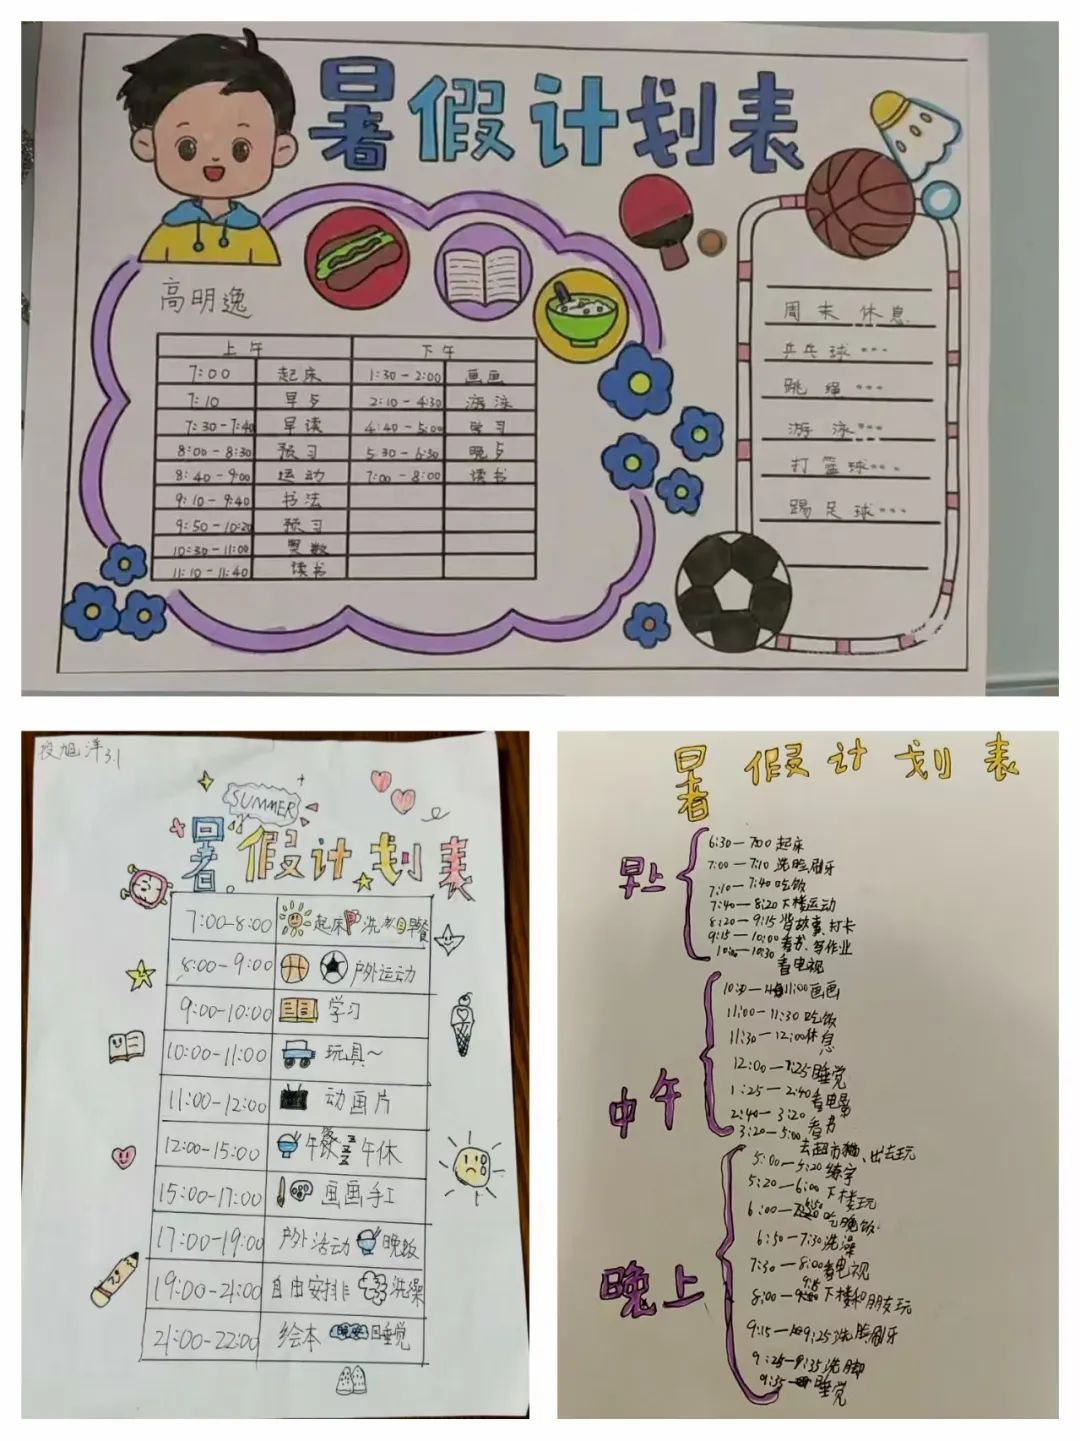 暑假计划表
高明逸
上午 下午
7:00 起床 1:30-2:00 画画
7:10 早歺 2:10-4:30 游泳
7:30-7:40 早读 4:40-5:00 学习
8:00-8:30 预习 5:30-6:30 晚歺
8:40-9:00 运动 7:00-8:00 读书
9:10-9:40 书法
9:50-10:20 预习
10:30-11:00 奥数
11:10-11:40 读书
周末休息
乒乓球…
跳绳…
游泳…
打篮球…
踢足球…
旭洋3.1
SUMMER
暑假计划表
7:00-8:00 起床 洗漱 早餐
8:00-9:00 户外运动
9:00-10:00 学习
10:00-11:00 玩具~
11:00-12:00 动画片
12:00-15:00 午餐 午休
15:00-17:00 画画手工
17:00-19:00 户外活动 晚饭
19:00-21:00 自由安排 洗澡
21:00-22:00 绘本 晚安 睡觉
暑假计划表
早上
6:30-7:00 起床
7:00-7:10 洗脸刷牙
7:10-7:40 吃饭
7:40-8:20 下楼运动
8:20-9:15 背故事、打卡
9:15-10:00 看书、写作业
10:00-10:30
看电视
中午
11:00 画画
11:00-11:30 吃饭
11:30-12:00 休息
12:00-1:25 睡觉
1:25-2:40 看电影
2:40-3:20 看书
3:20-5:00
去超市、出去玩
晚上
5:00-5:20 练字
5:20-6:00 下楼玩
6:00-6:50 吃晚饭
6:50-7:30 洗澡
7:30-8:00 看电视
8:00-9:15 下楼和朋友玩
9:15-9:25 洗脸刷牙
9:25-9:35 洗脚
9:35- 睡觉